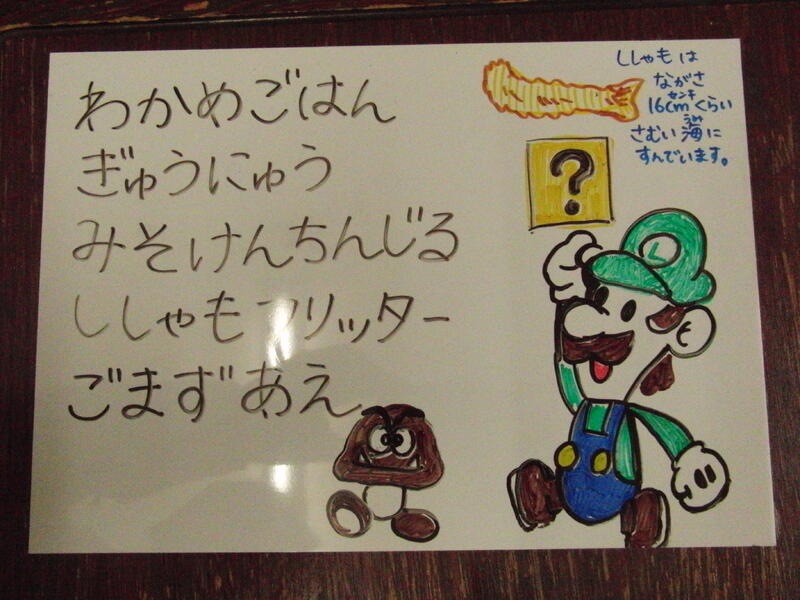 わかめごはん
ぎゅうにゅう
みそけんちんじる
ししゃもフリッター
ごまずあえ
ししゃもは
ながさ
センチ
16cmくらい
うみ
さむい海に
すんでいます。
?
L